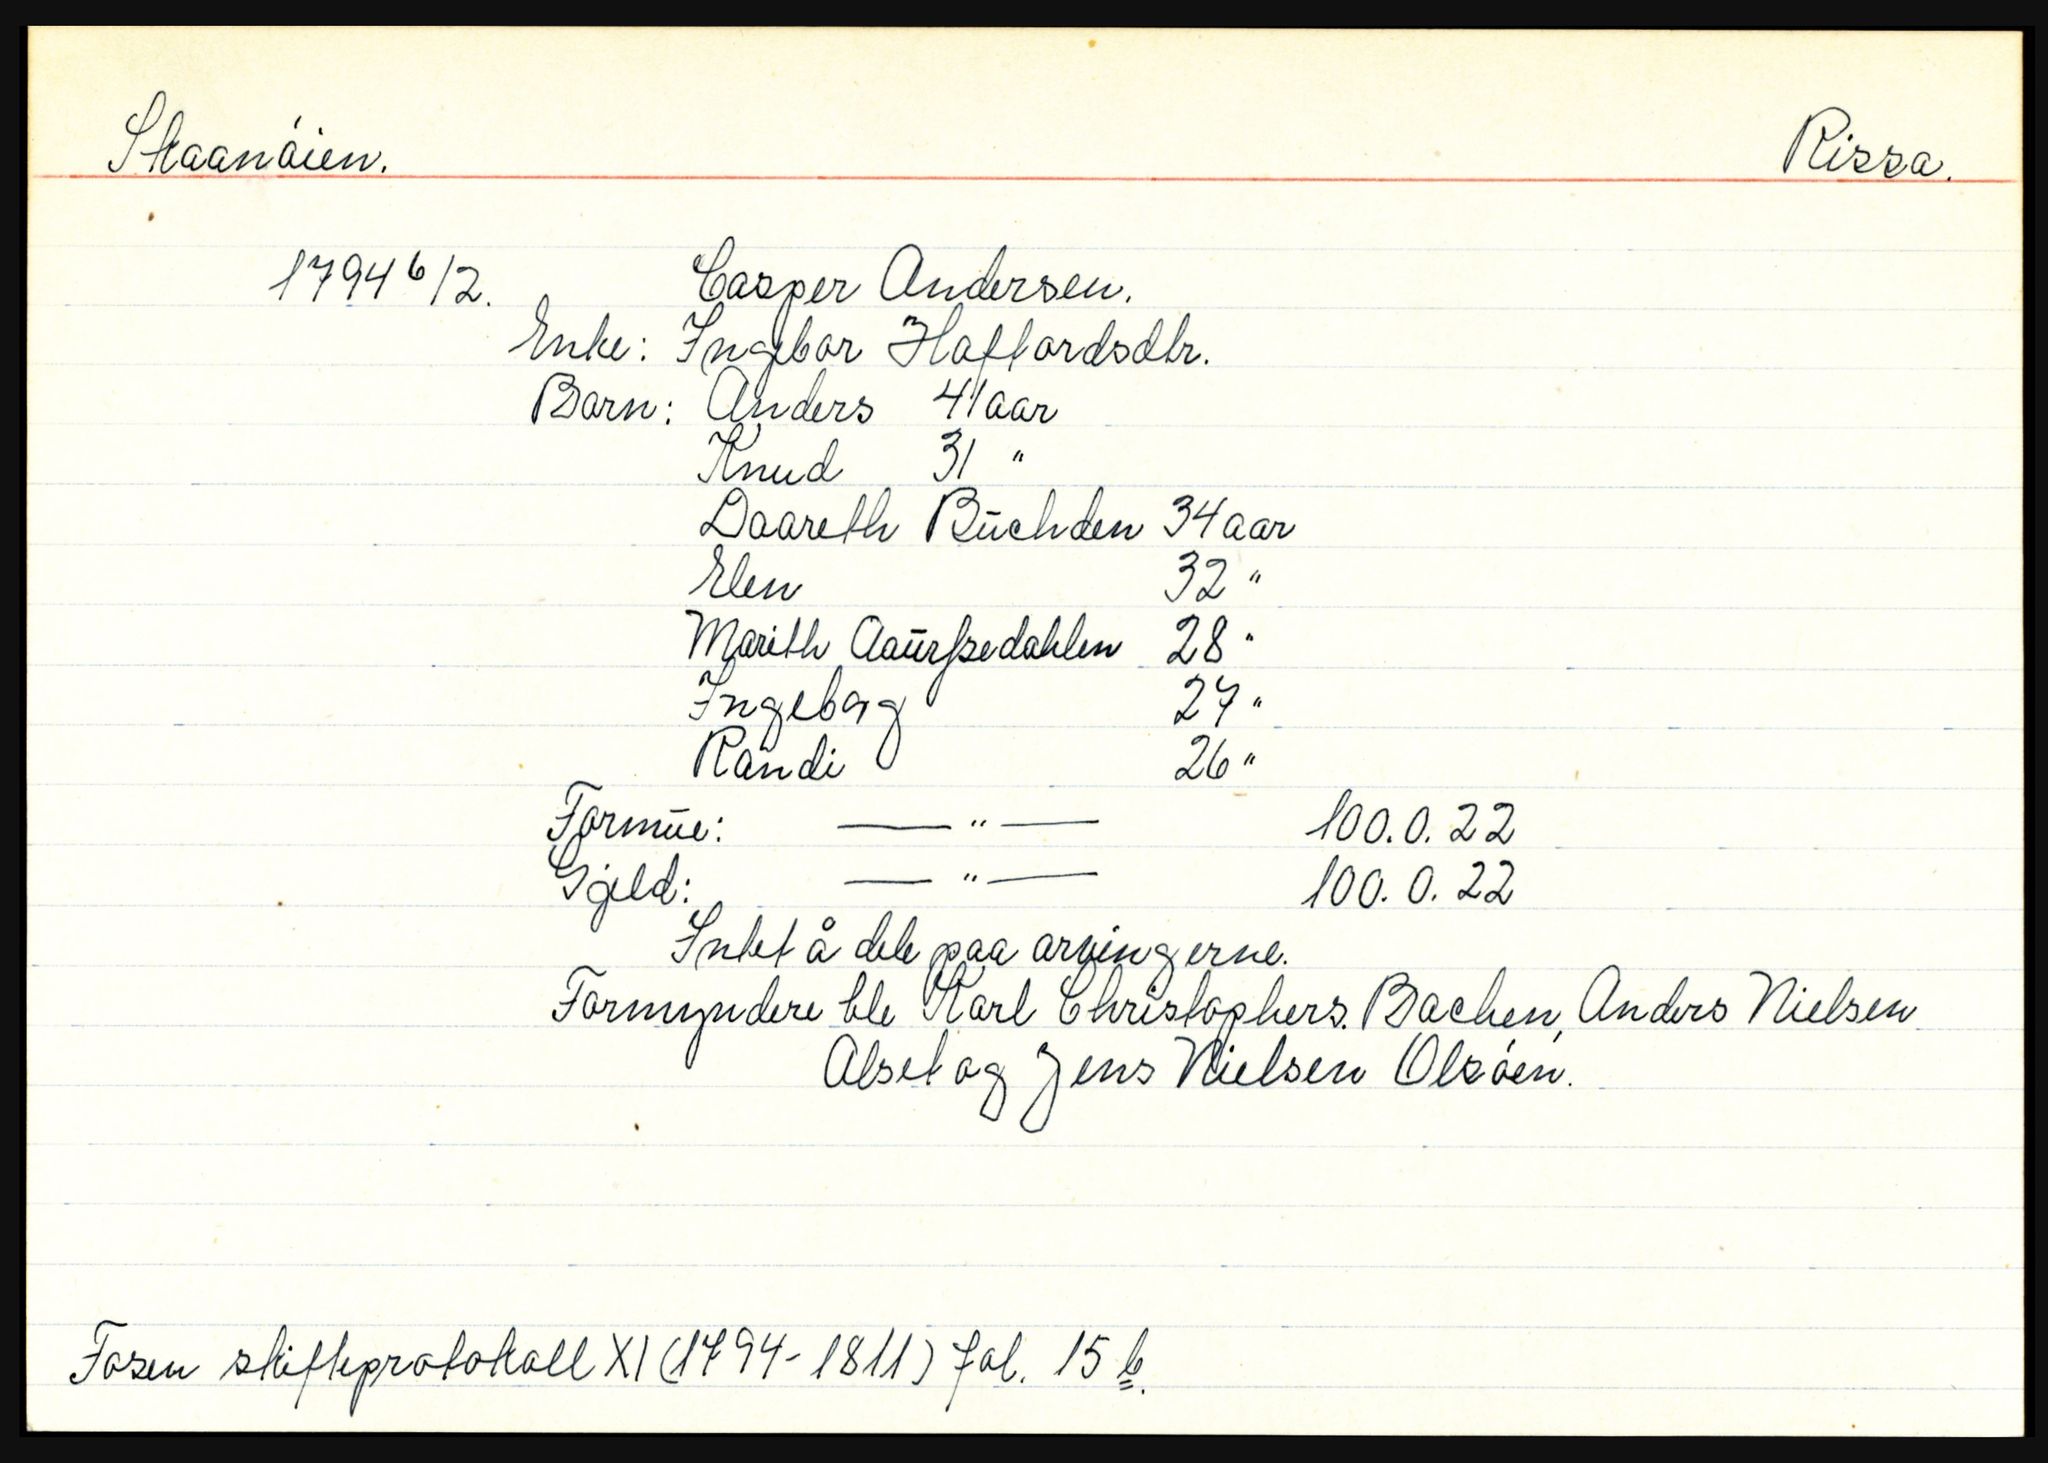 Skaanöien. Rissa.
1794 6/2. Casper Andersen.
Enke: Ingebor Haftordsdtr.
Born: Anders 41 aar
Knud 31 "
Dooreth Büchden 34 aar
Elen 32 "
Marith Aaürszedahlen 28 "
Ingeborg 27 "
Randi 26 "
Formüe: — " — 100.0.22
Gjeld: — " — 100.0.22
Intet å dele paa arvingerne.
Formyndere ble Karl Christophers. Bachen, Anders Nielsen
Alset og Jens Nielsen Olsöen.
Fosen skifteprotokoll XI (1794-1811) fol. 15 b.